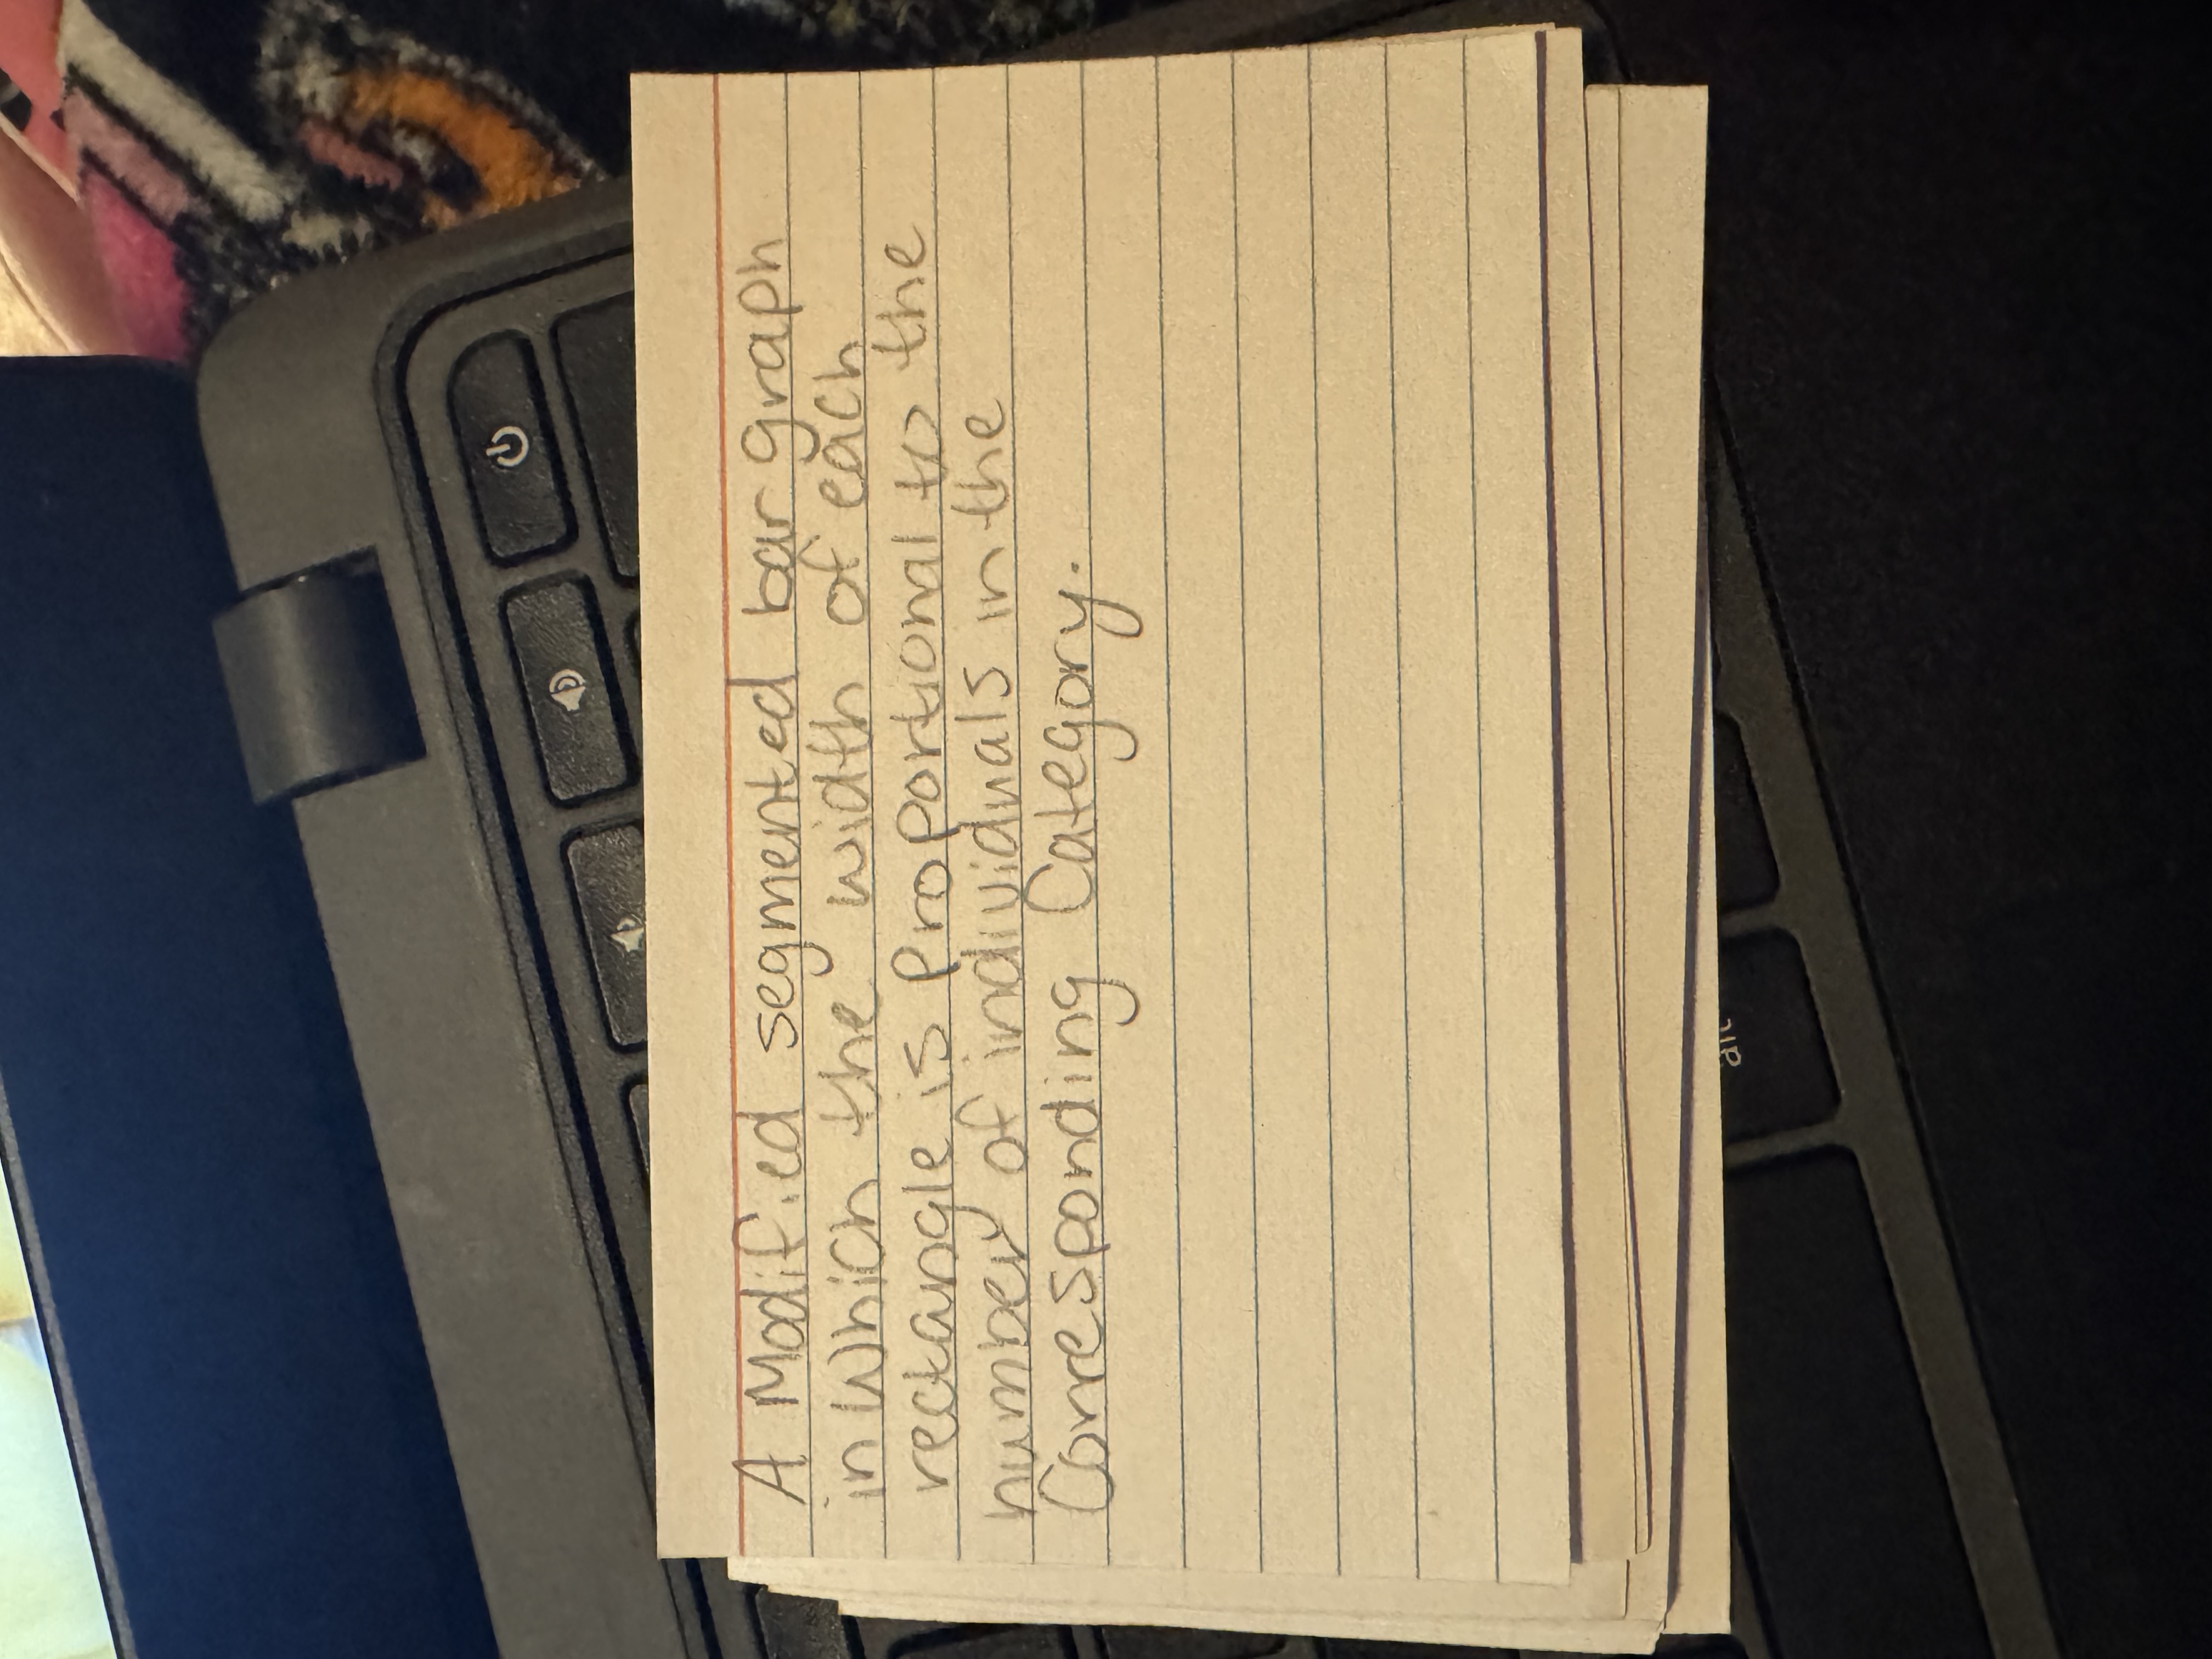 A Modified segmented bar graph
in Which the width of each
rectangle is Proportional to the
number of individuals in the
Corresponding Category.